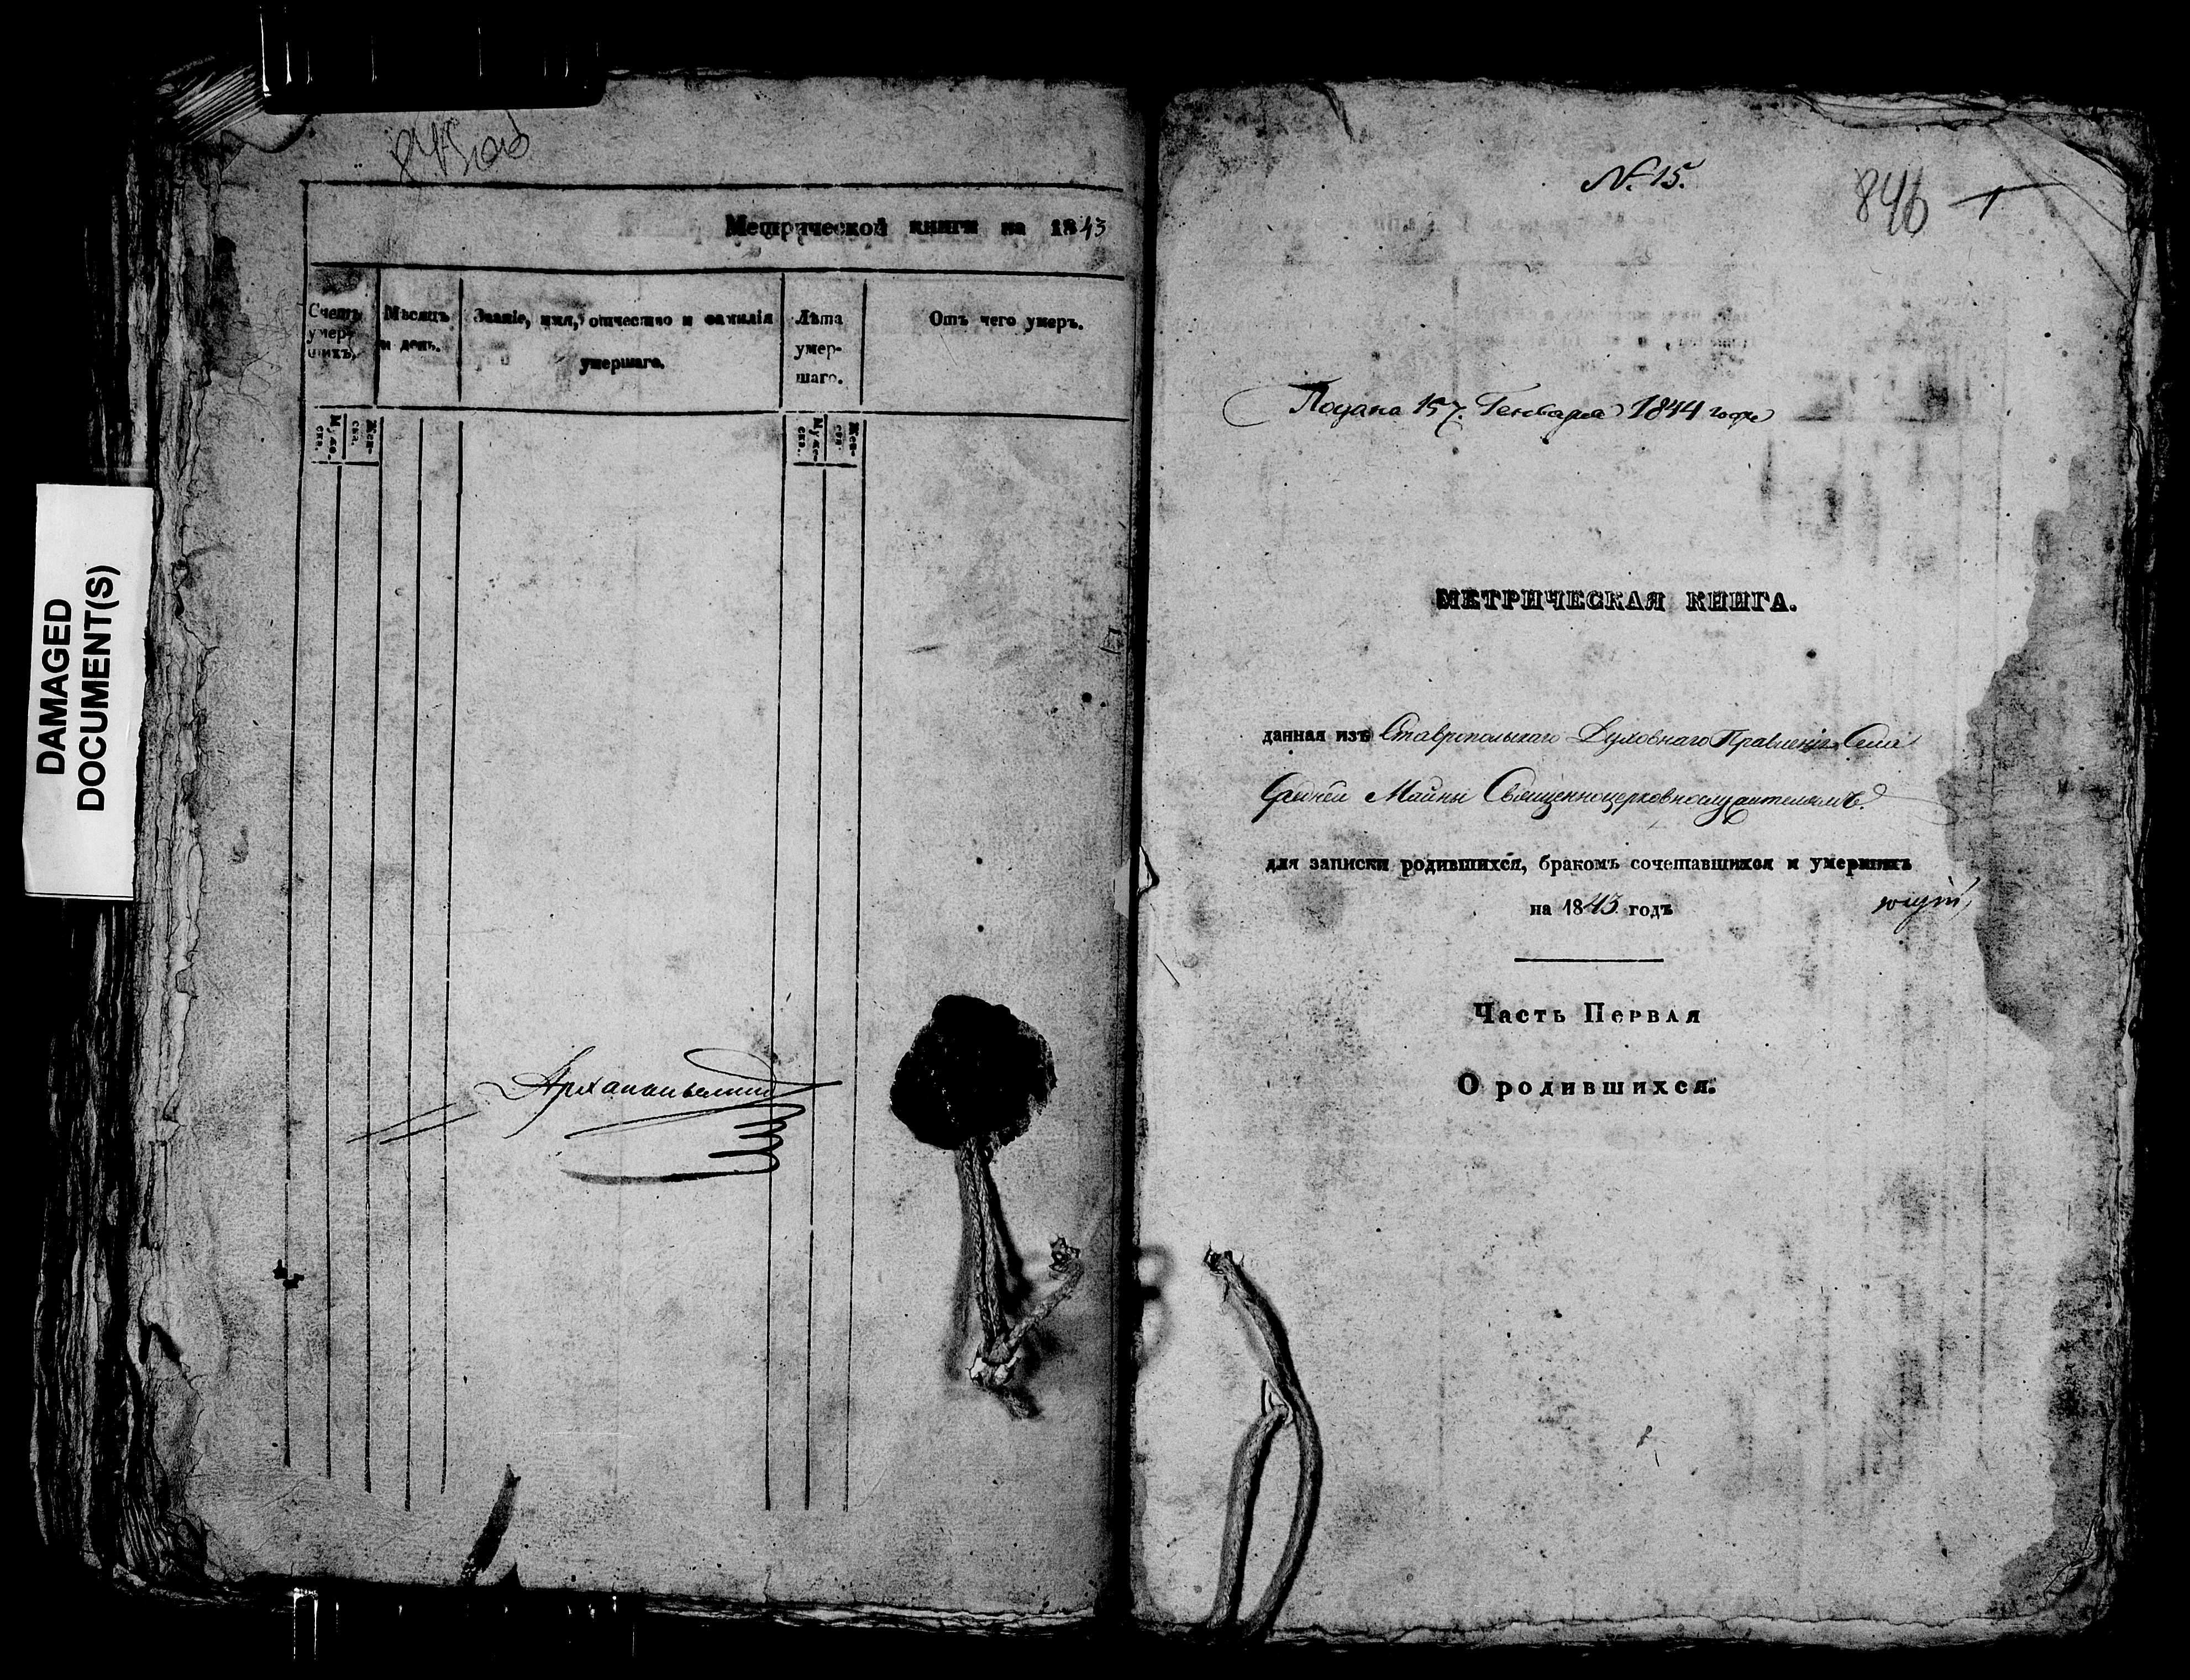 DAMAGED
DOCUMENT(S)
845 об
Метрической книги на 1843
Счетъ умер- шихъ.
Мѣсяцъ и день.
Званіе, имя, отчество и фамилія умершаго.
Лѣта умер- шаго.
Отъ чего умеръ.
Муже- ска.
Жен- ска.
Муже- ска.
Жен- ска.
Архангельскій
№ 15.
846
Подана 15 Генваря 1844 года
МЕТРИЧЕСКАЯ КНИГА.
данная изъ Ставропольскаго Духовнаго Правленія Села
Средней Майны Священноцерковнослужителямъ.
для записки родившихся, бракомъ сочетавшихся и умершихъ
на 1843 годъ
Часть Первая
О родившихся.